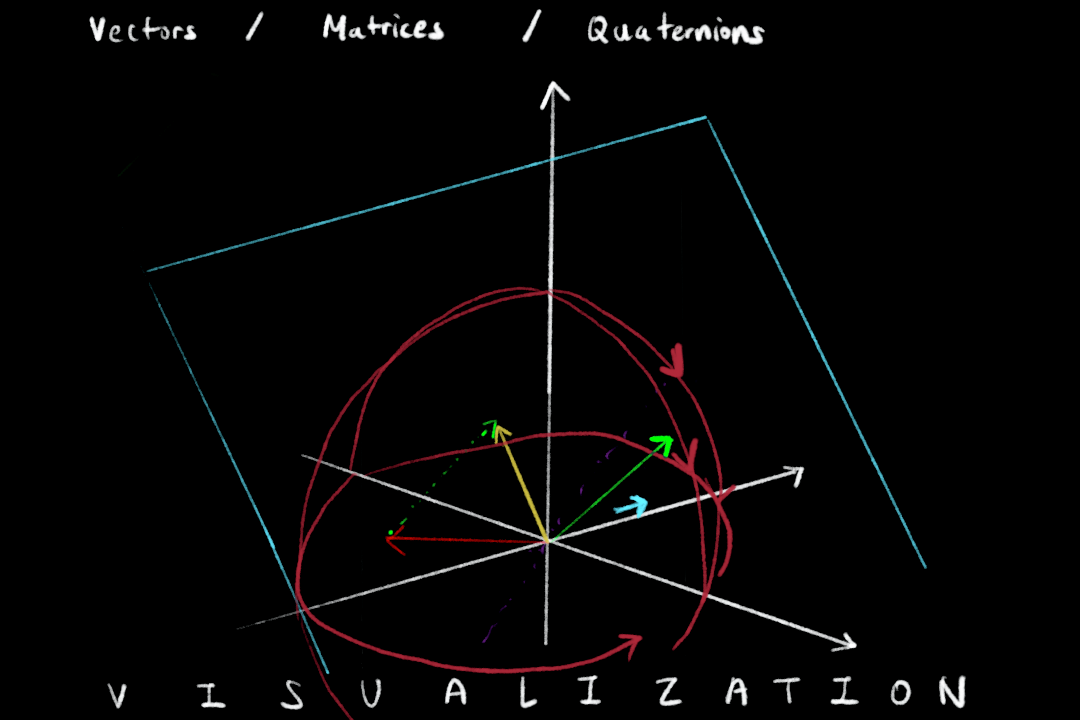 Vectors / Matrices / Quaternions
VISUALIZATION